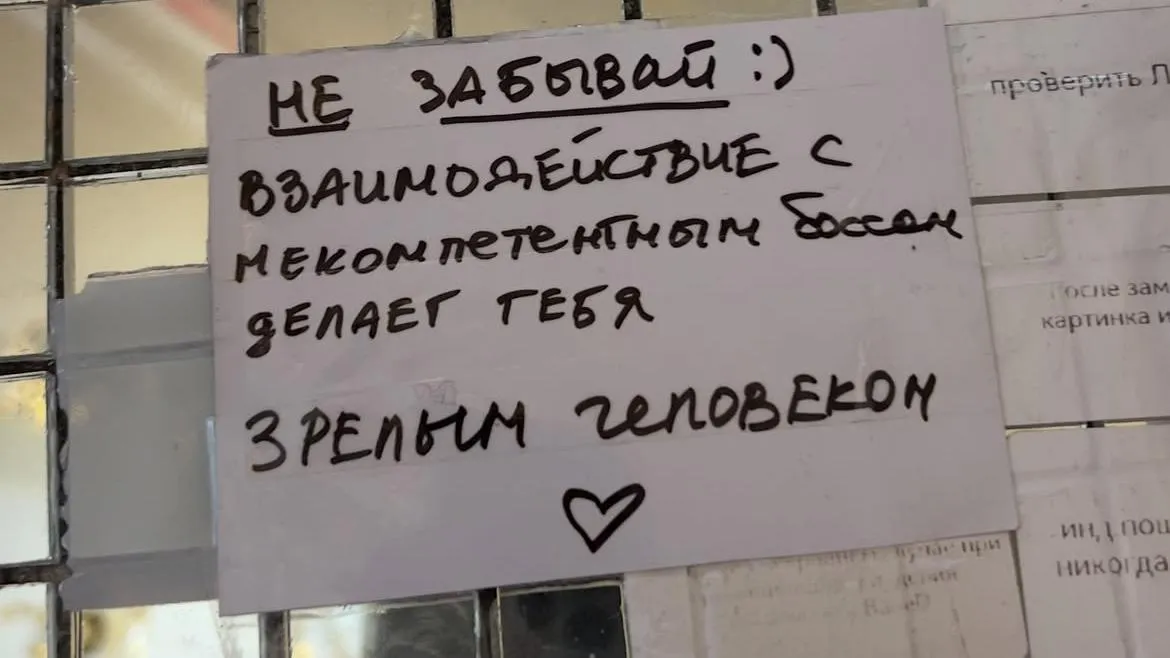 НЕ ЗАБЫВАЙ :)
ВЗАИМОДЕЙСТВИЕ С
НЕКОМПЕТЕНТНЫМ БОССОМ
ДЕЛАЕТ ТЕБЯ
ЗРЕЛЫМ ЧЕЛОВЕКОМ
проверить
После
картинка и
никогда